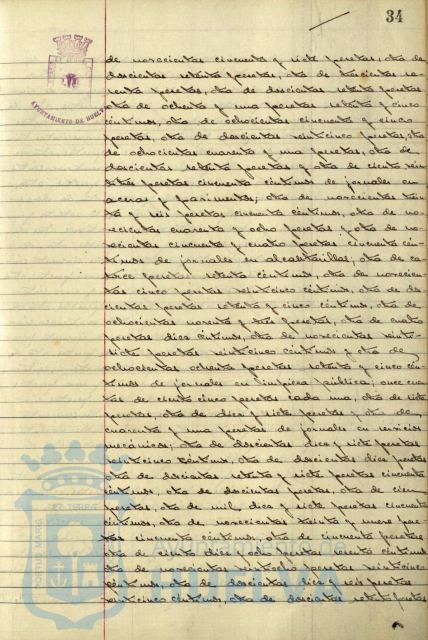 34
AYUNTAMIENTO DE HUELVA
de novecientas cincuenta y siete pesetas, otra de
doscientas setenta pesetas, otra de trescientas se-
senta pesetas, otra de doscientas setenta pesetas
otra de ochenta y una pesetas setenta y cinco
céntimos, otra de ochocientas cincuenta y cinco
pesetas, otra de doscientas veinticinco pesetas, otra
de ochocientas cuarenta y una pesetas, otra de
doscientas setenta pesetas y otra de ciento vein-
titres pesetas cincuenta céntimos de jornales en
aceras y pavimentos; otra de novecientas trein-
ta y seis pesetas cincuenta céntimos, otra de no-
vecientas cuarenta y ocho pesetas y otra de no-
vecientas cincuenta y cuatro pesetas cincuenta cén-
timos de jornales en alcantarillas; otra de ca-
torce pesetas setenta céntimos, otra de novecien-
tas cinco pesetas veinticinco céntimos, otra de dos-
cientas pesetas setenta y cinco céntimos, otra de
ochocientas noventa y tres pesetas, otra de cuatro
pesetas diez céntimos, otra de novecientas veinti-
siete pesetas veinticinco céntimos y otra de
ochocientas ochenta pesetas setenta y cinco cén-
timos de jornales en limpieza pública; once cuen-
tas de ciento cinco pesetas cada una, otra de siete
pesetas, otra de diez y siete pesetas y otra de
cuarenta y una pesetas de jornales en servicios
mecánicos; otra de doscientas diez y siete pesetas
veinticinco céntimos, otra de doscientas diez pesetas
otra de doscientas setenta y siete pesetas cincuenta
céntimos, otra de doscientas pesetas, otra de cien
pesetas, otra de mil diez y siete pesetas cincuenta
céntimos, otra de novecientas treinta y nueve pese-
tas cincuenta céntimos, otra de cincuenta pesetas
otra de ciento diez y ocho pesetas setenta céntimos
otra de novecientas veintiocho pesetas veinticinco
céntimos, otra de doscientas diez y seis pesetas
veinticinco céntimos, otra de doscientas setenta pesetas